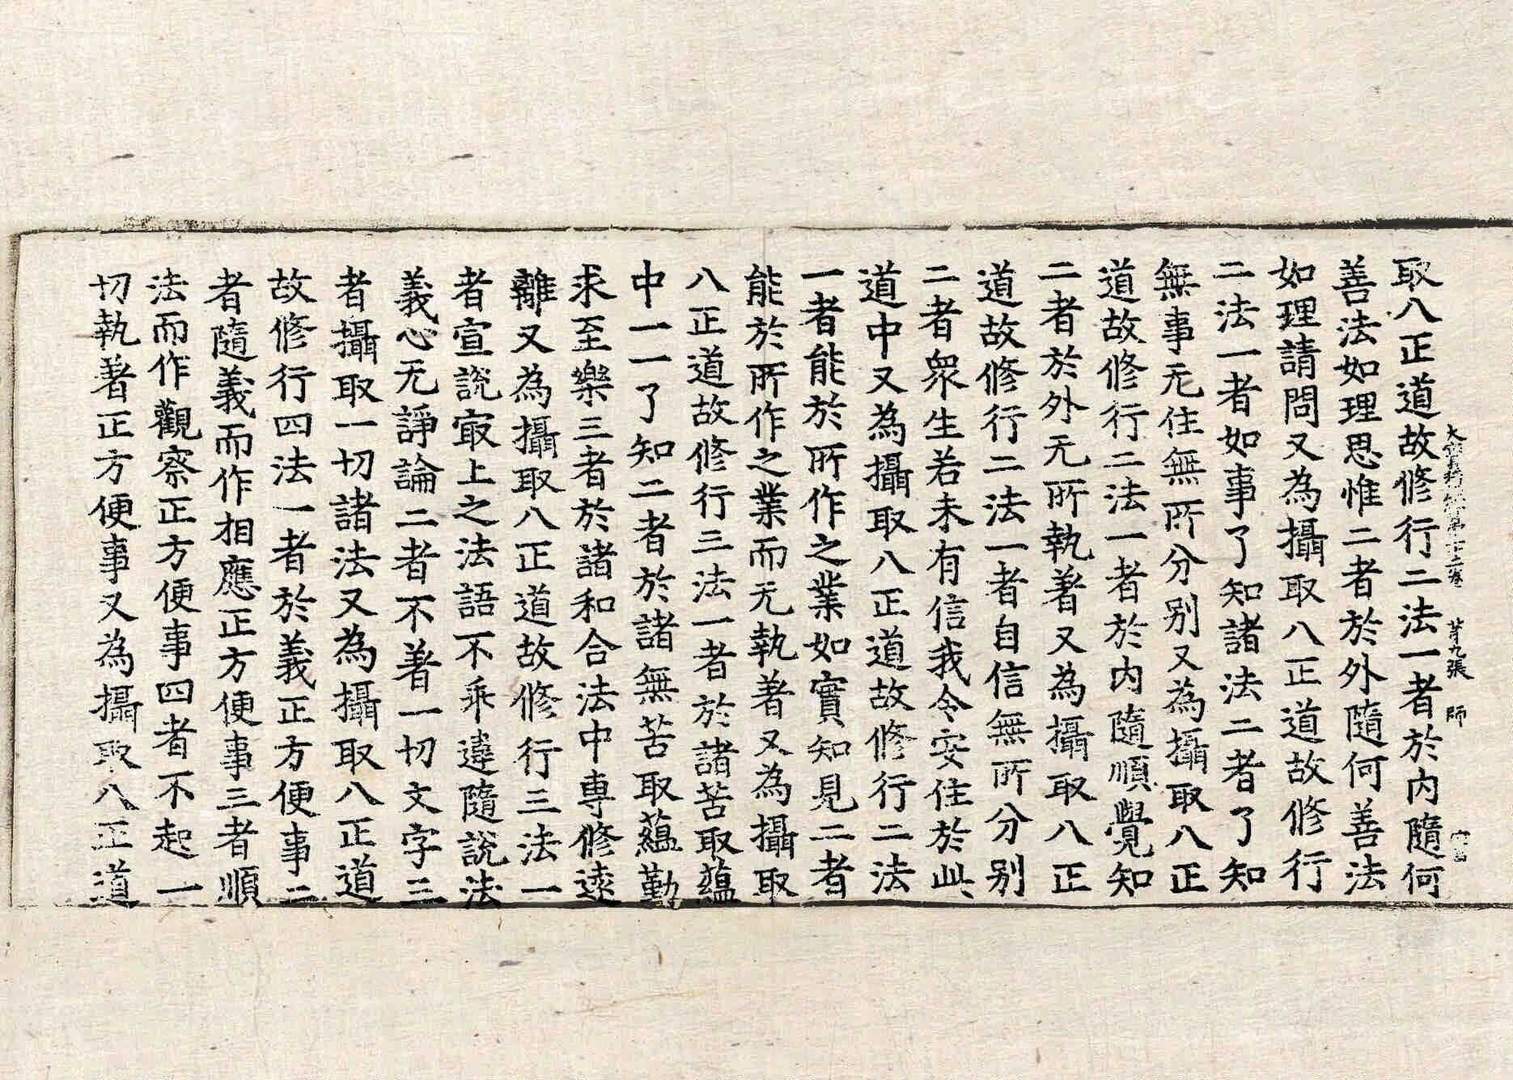 大寶積經第五十三卷 苐九張 師
取八正道故修行二法一者於內隨何
善法如理思惟二者於外隨何善法
如理請問又為攝取八正道故修行
二法一者如事了知諸法二者了知
無事无住無所分别又為攝取八正
道故修行二法一者於内隨順覺知
二者於外无所執著又為攝取八正
道故修行二法一者自信無所分别
二者衆生若未有信我令安住於此
道中又為攝取八正道故修行二法
一者能於所作之業如實知見二者
能於所作之業而无執著又為攝取
八正道故修行三法一者於諸苦取蘊
中一一了知二者於諸無苦取蘊勤
求至樂三者於諸和合法中專修遠
離又為攝取八正道故修行三法一
者宣說㝡上之法語不乖違隨說法
義心无諍論二者不著一切文字三
者攝取一切諸法又為攝取八正道
故修行四法一者於義正方便事二
者隨義而作相應正方便事三者順
法而作觀察正方便事四者不起一
切執著正方便事又為攝取八正道